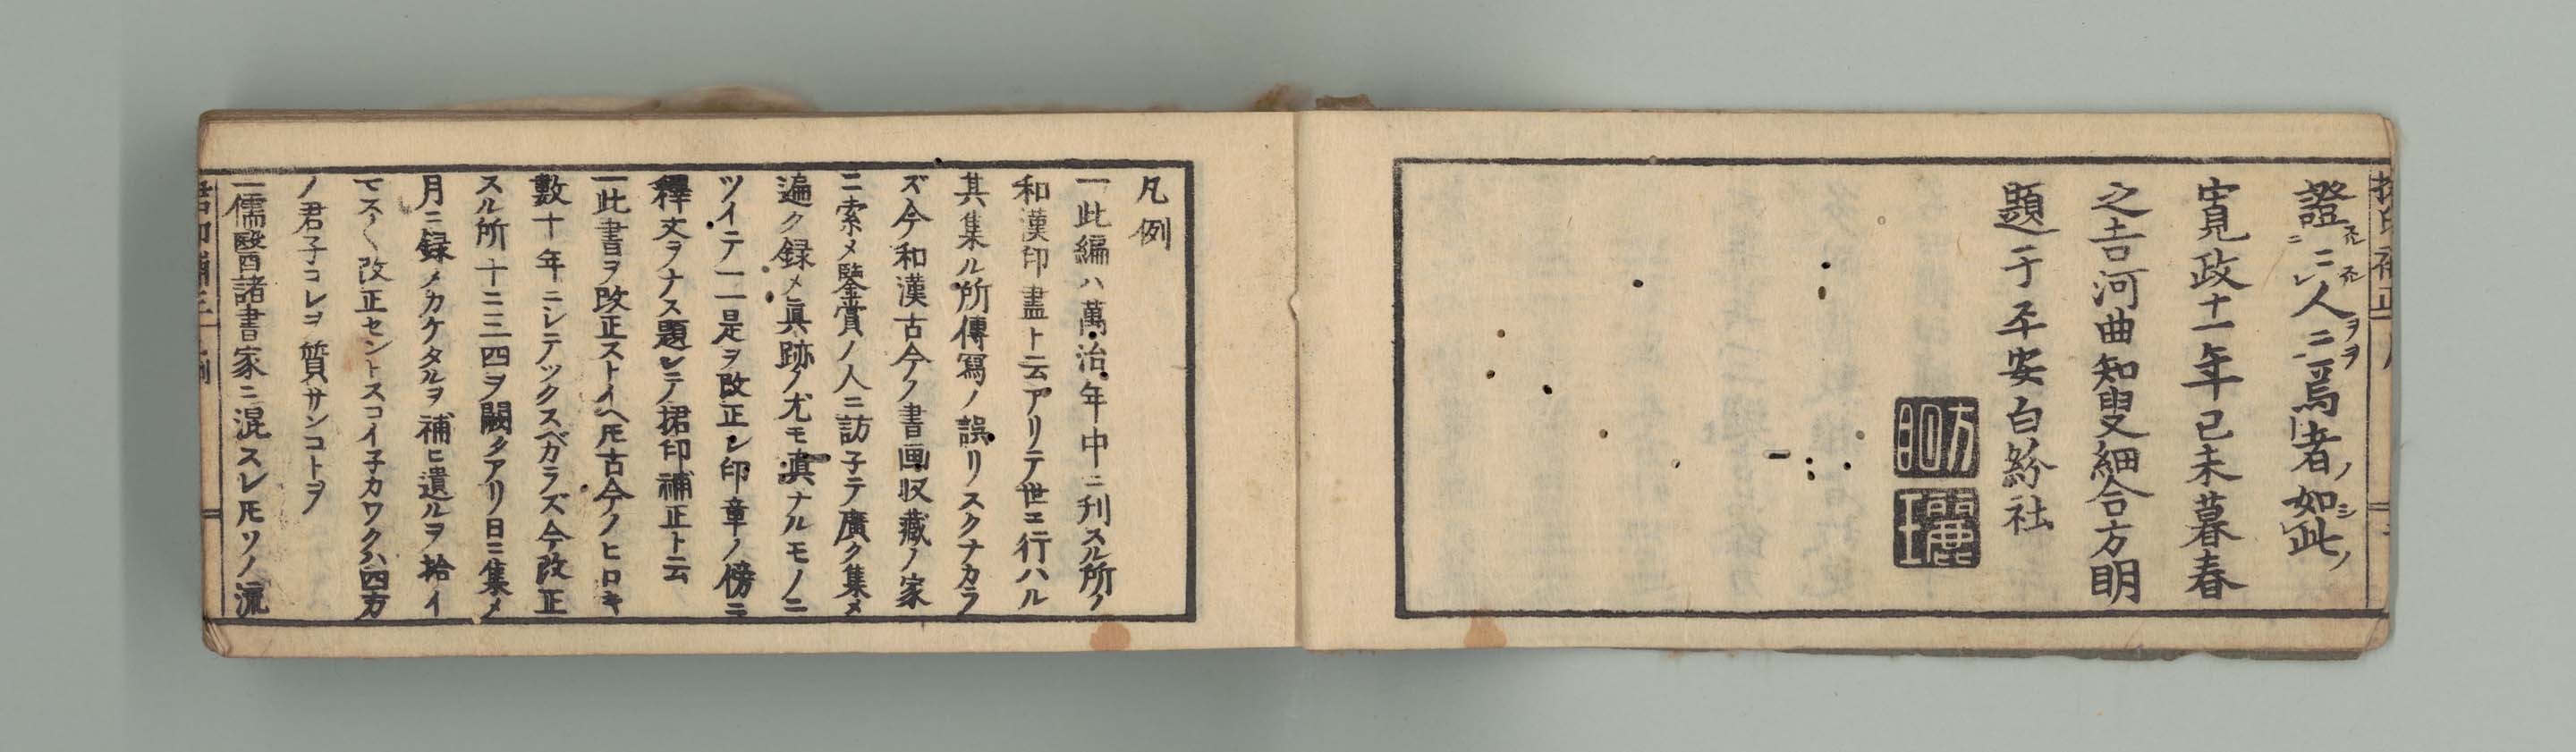 證ニ二人ヲ焉者ノ如シ此ノ
寛政十一年己未暮春
之吉河曲知叟細合方明
題于平安白紛社
方明
凡例
一此編ハ萬治年中ニ刊スル所ノ
和漢印盡ト云アリテ世ニ行ハル
其集ル所傳寫ノ誤リスクナカラ
ズ今和漢古今ノ書画収藏ノ家
ニ索メ鑒賞ノ人ニ訪子テ廣ク集メ
遍ク録メ眞跡ノ尤モ眞ナルモノニ
ツイテ一一是ヲ改正シ印章ノ傍ニ
釋文ヲナス題レテ捃印補正ト云
一此書ヲ改正ストイヘ𪜈古今ノヒロキ
數十年ニシテツクスベカラズ今改正
スル所十ニ三四ヲ闕クアリ日ニ集メ
月ニ録メカケタルヲ補ヒ遺ルヲ拾イ
マス〱改正セントスコイ子カワクハ四方
ノ君子コレヲ質サンコトヲ
一儒毉諸書家ニ混スレ𪜈ソノ流